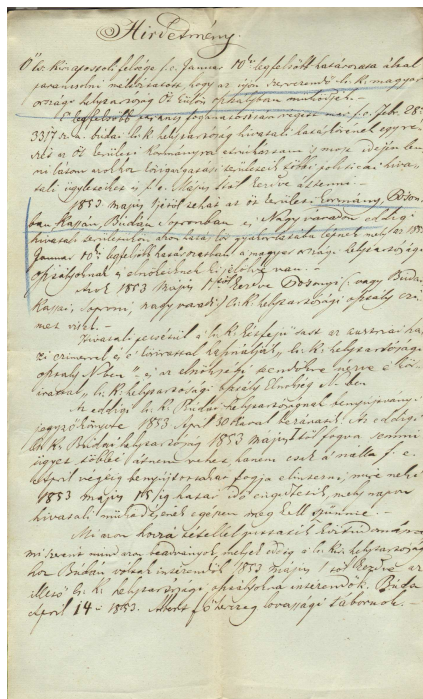 Hirdetmény.
Ő cs. Kir. apostoli felsége f. e. Januar 10én legfelsőbb határozata által
parancsolni méltóztatott, hogy az ujon szervezendő cs. K. magyar
országi helytartóság öt külön osztályban működjék. –
E legfelsőbb parancs foganatosítása végett már f. e. Febr. 28
a budai cs. k. helytartóság hivatali hatásának egy re-
az öt kerületi kormányra most idején len-
területeik többi politicai hiva-
tali ügyeletket is f. e. Majus 1től kezdve áttenni –
1853 május 1jétől tehát az öt kerületi kormány, Poson-
ban, Kassán, Budán, Sopronban és Nagyváradon eddigi
hivatali azon hatás lépnek melyek 1853
Januar 10i legfelsőbb határozatban a magyar országi helytartósági
osztályoknak és elnökeiknek kijelölve van. –
Azok 1853 május 1től kezdve Posonyi (: vagy Budai,
Kassai, Soproni, nagyváradi :) cs. K. helytartósági osztály czi-
met visel. –
Hivatali pecsétül a cs. K. kétfejü sast az austriai csá-
szi czimerrel és e körirattal használják „ cs. K. helytartósági
osztály N-ben" – és az elnökségi nézve e kör-
irattal „ cs. K. helytartósági osztály Elnökség N-ben
Az eddigi cs. K. Budai helytartóságnak benyujtványi
jegyzőkönyve 1853 April 30kával bezáratik. Az eddigi
cs. K. Budai helytartóság 1853 május 1től fogva semmi
ügyet többé át nem vehet, hanem csak a nálla f. e.
April végéig benyujtottakat fogja elintézni, mire nehéz
1853 május 15ig határ idő engedtetik, mely napon
hivatali működésének egészen meg kell szünnie –
Mi azon hozzá tétellel tudomásra
miszerint mind azon beadványok, melyek eddig a cs. kir. helytartóság-
hoz Budán voltak intézendők 1853 május 1től kezdve az
illető cs. K. helytartósági osztályhoz intézendők. Budán
April 14én 1853. Albert főherczeg lovassági tábornok. –